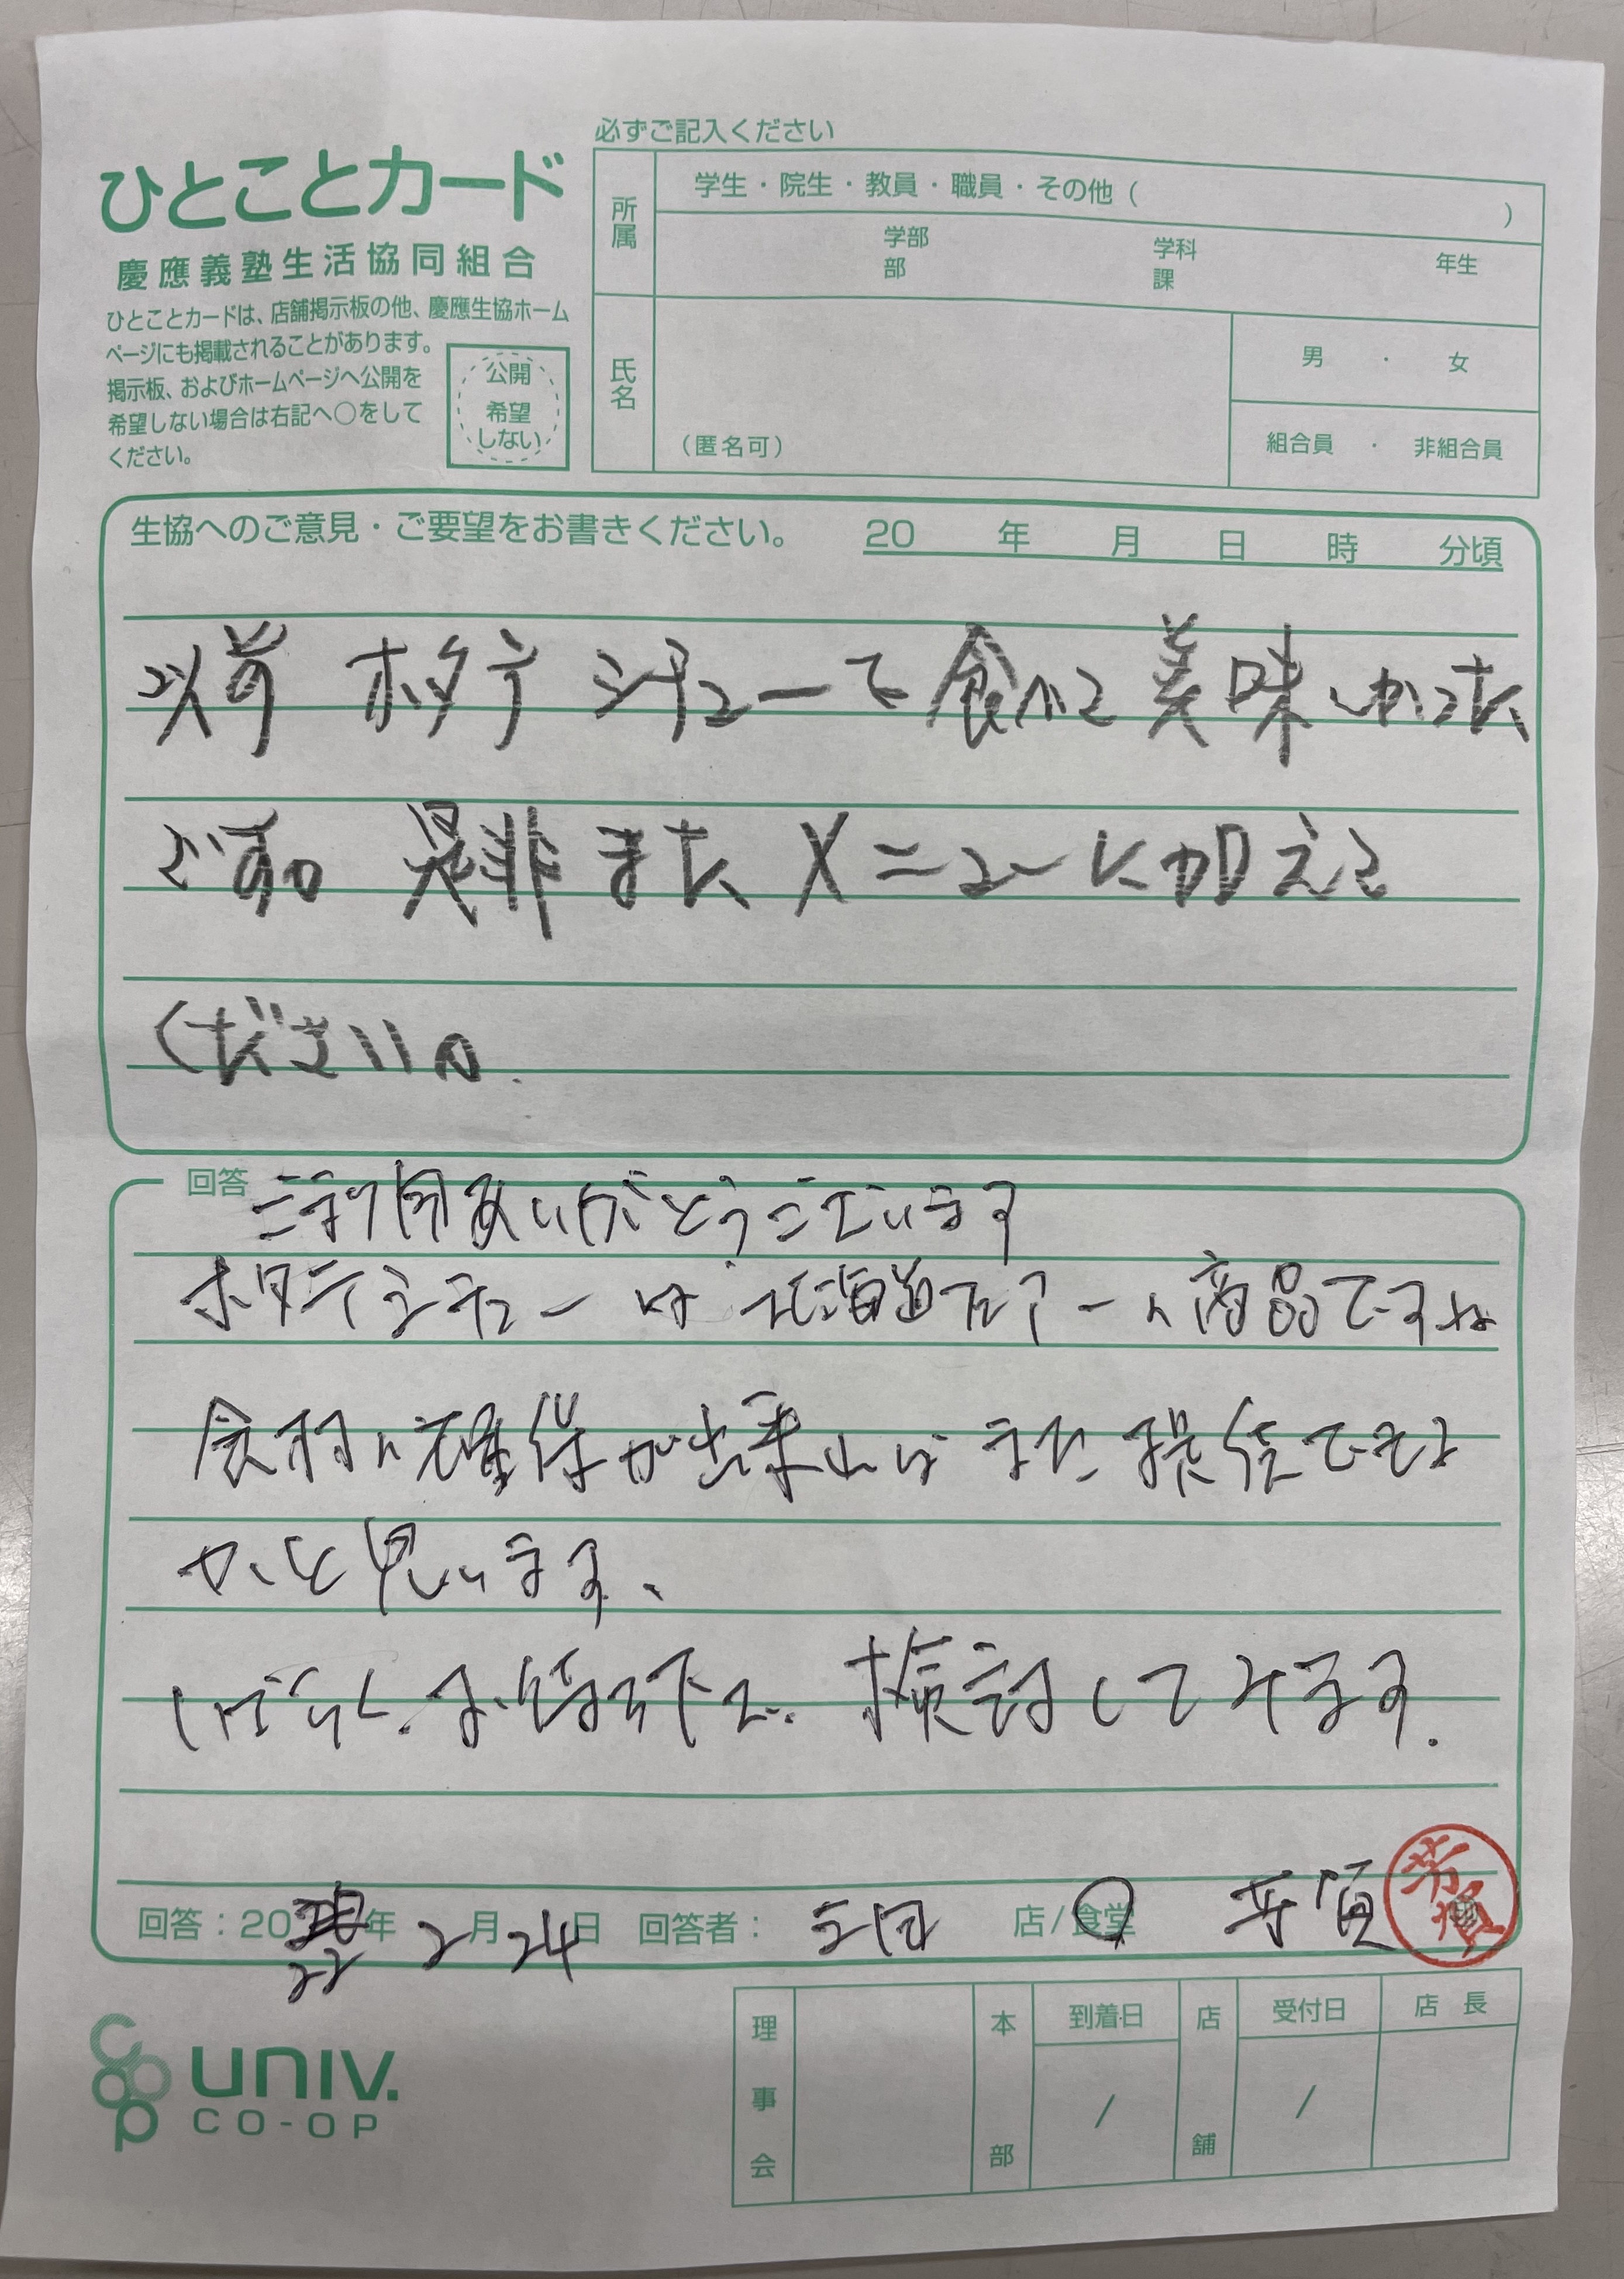 必ずご記入ください
ひとことカード
慶應義塾生活協同組合
ひとことカードは、店舗掲示板の他、慶應生協ホーム
ページにも掲載されることがあります。
掲示板、およびホームページへ公開を
希望しない場合は右記へ○をして
ください。
公開
希望
しない
所属
学生・院生・教員・職員・その他（ ）
学部 学科 年生
部 課
氏名
（匿名可）
男 ・ 女
組合員 ・ 非組合員
生協へのご意見・ご要望をお書きください。 20 年 月 日 時 分頃
以前 ホタテ シチューで食べて美味しかった
です。 是非また メニューに加えて
ください。
回答 ご利用ありがとうございます
ホタテシチューは北海道フェアーの商品ですね
食材の確保が出来ればまた提供できる
かと思います、
しばらくお待ち下さい。検討してみます.
回答：2022年 2月 24日 回答者： 三田 店/食堂
理事会
本部
到着日
/
店舗
受付日
/
店長
UNIV.
CO-OP